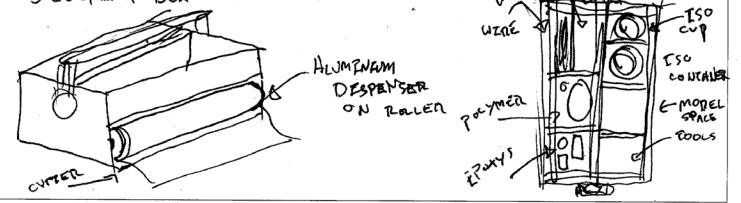 BOX
ALUMINUM
DISPENSER
ON ROLLER
CUTTER
WIRE
ISO
CUP
ISO CONTAINER
MODEL
SPACE
TOOLS
POLYMER
EPOXYS